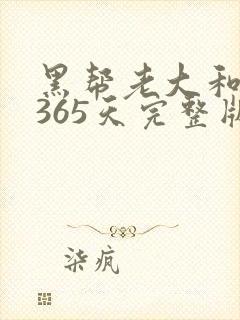 黑帮老大和
365天完整版
柒疯